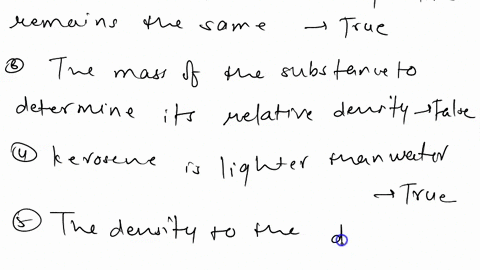 remains the same → True
③ The mass of the substance to
determine its relative density → False
④ kerosene is lighter than water
→ True
⑤ The density to the d